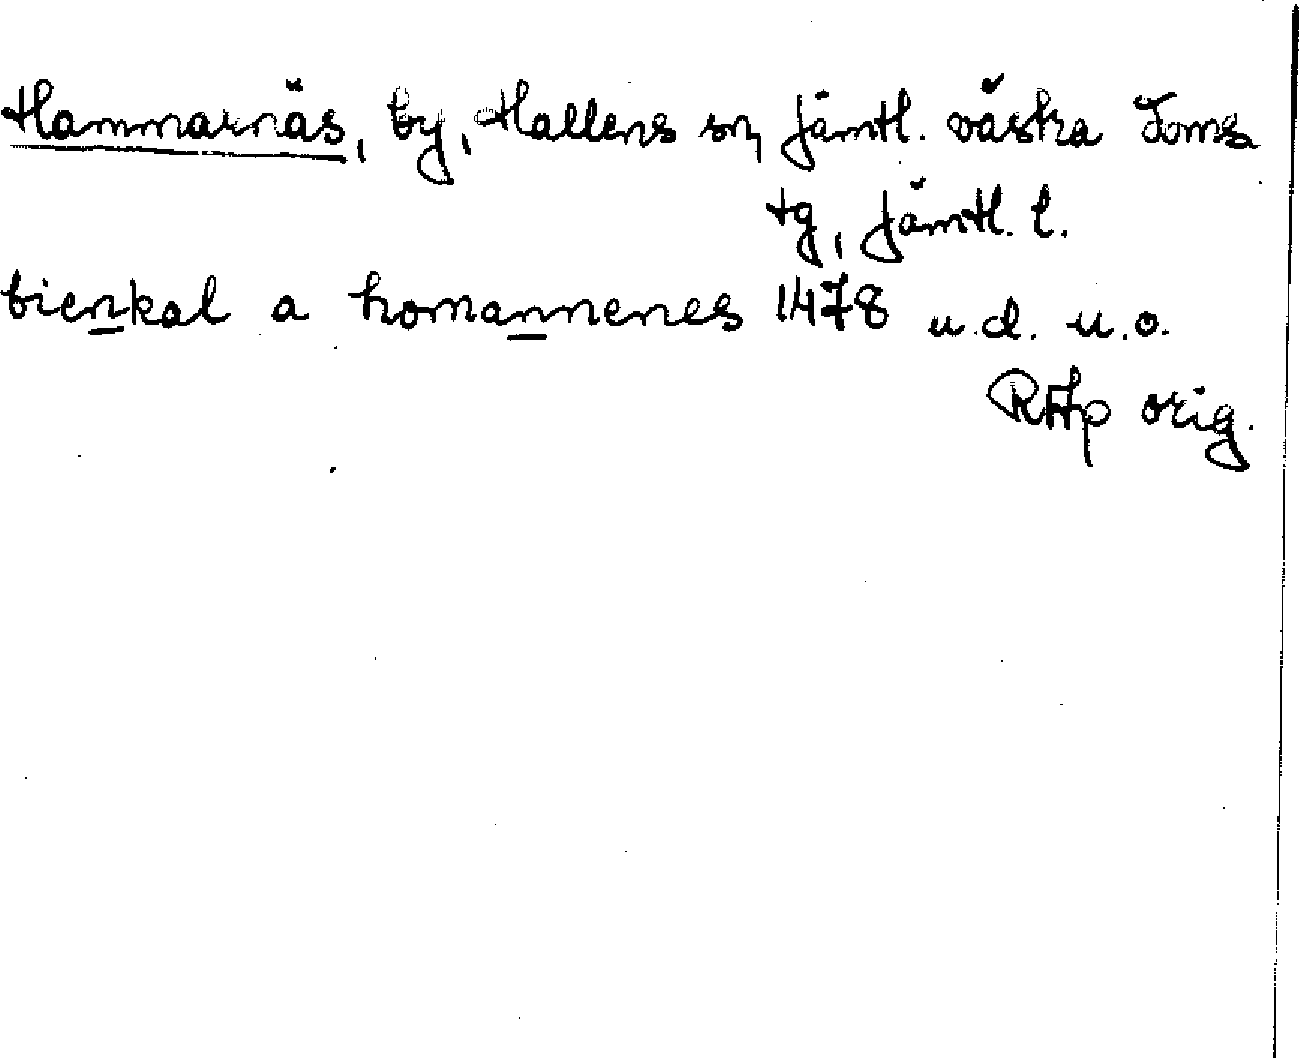 Hammarnäs, by, Hallens sn, Jämtl. västra Doms
tg, Jämtl. l.
bienkal a homannenes 1478 u.d. u.o.
RAp orig.